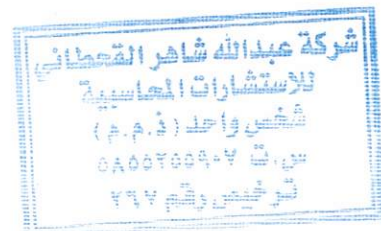 شركة عبدالله شاهر القحطاني
للاستشارات المحاسبية
شخص واحد (ذ.م.م)
س.ت
ترخيص رقم ٧٩٧